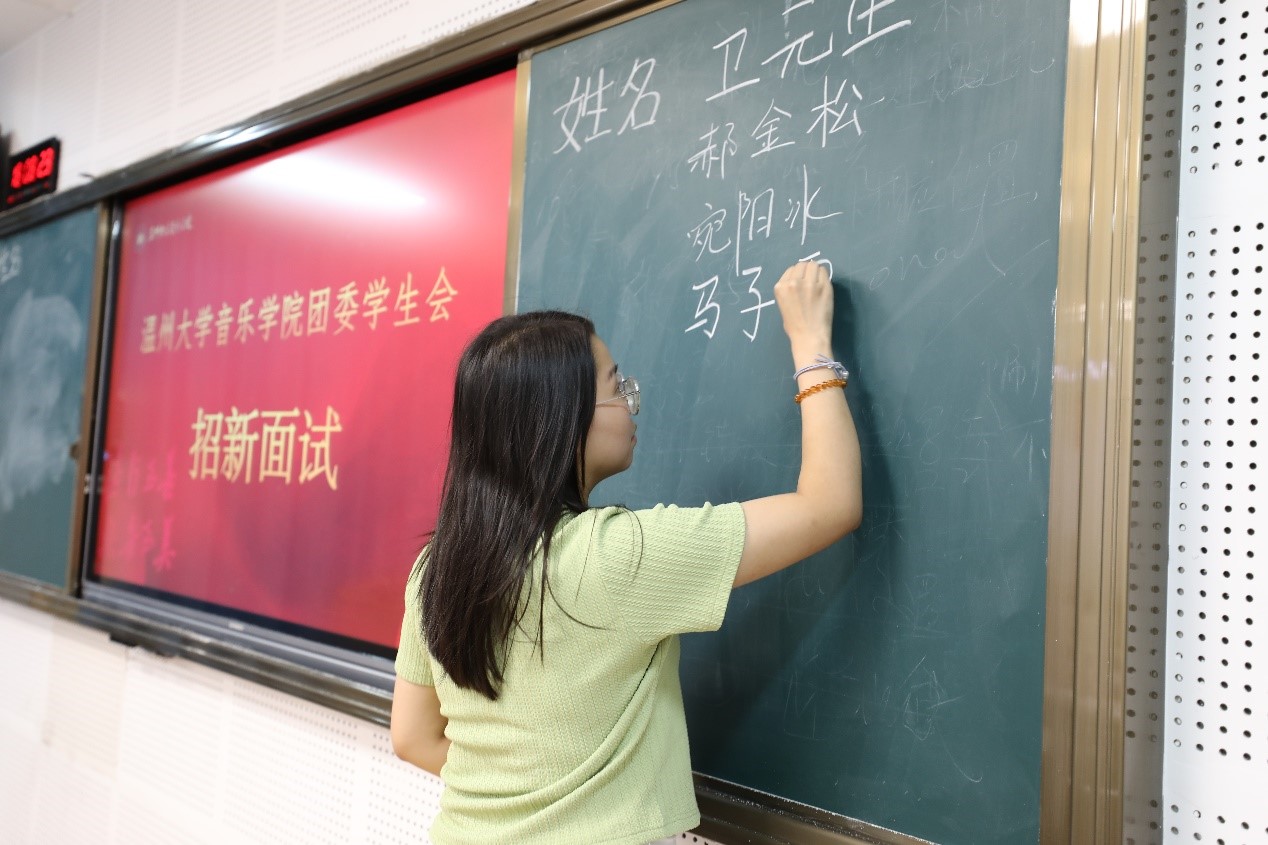 温州大学音乐学院团委学生会
招新面试
姓名 卫元生
郝金松
宛阳冰
马子